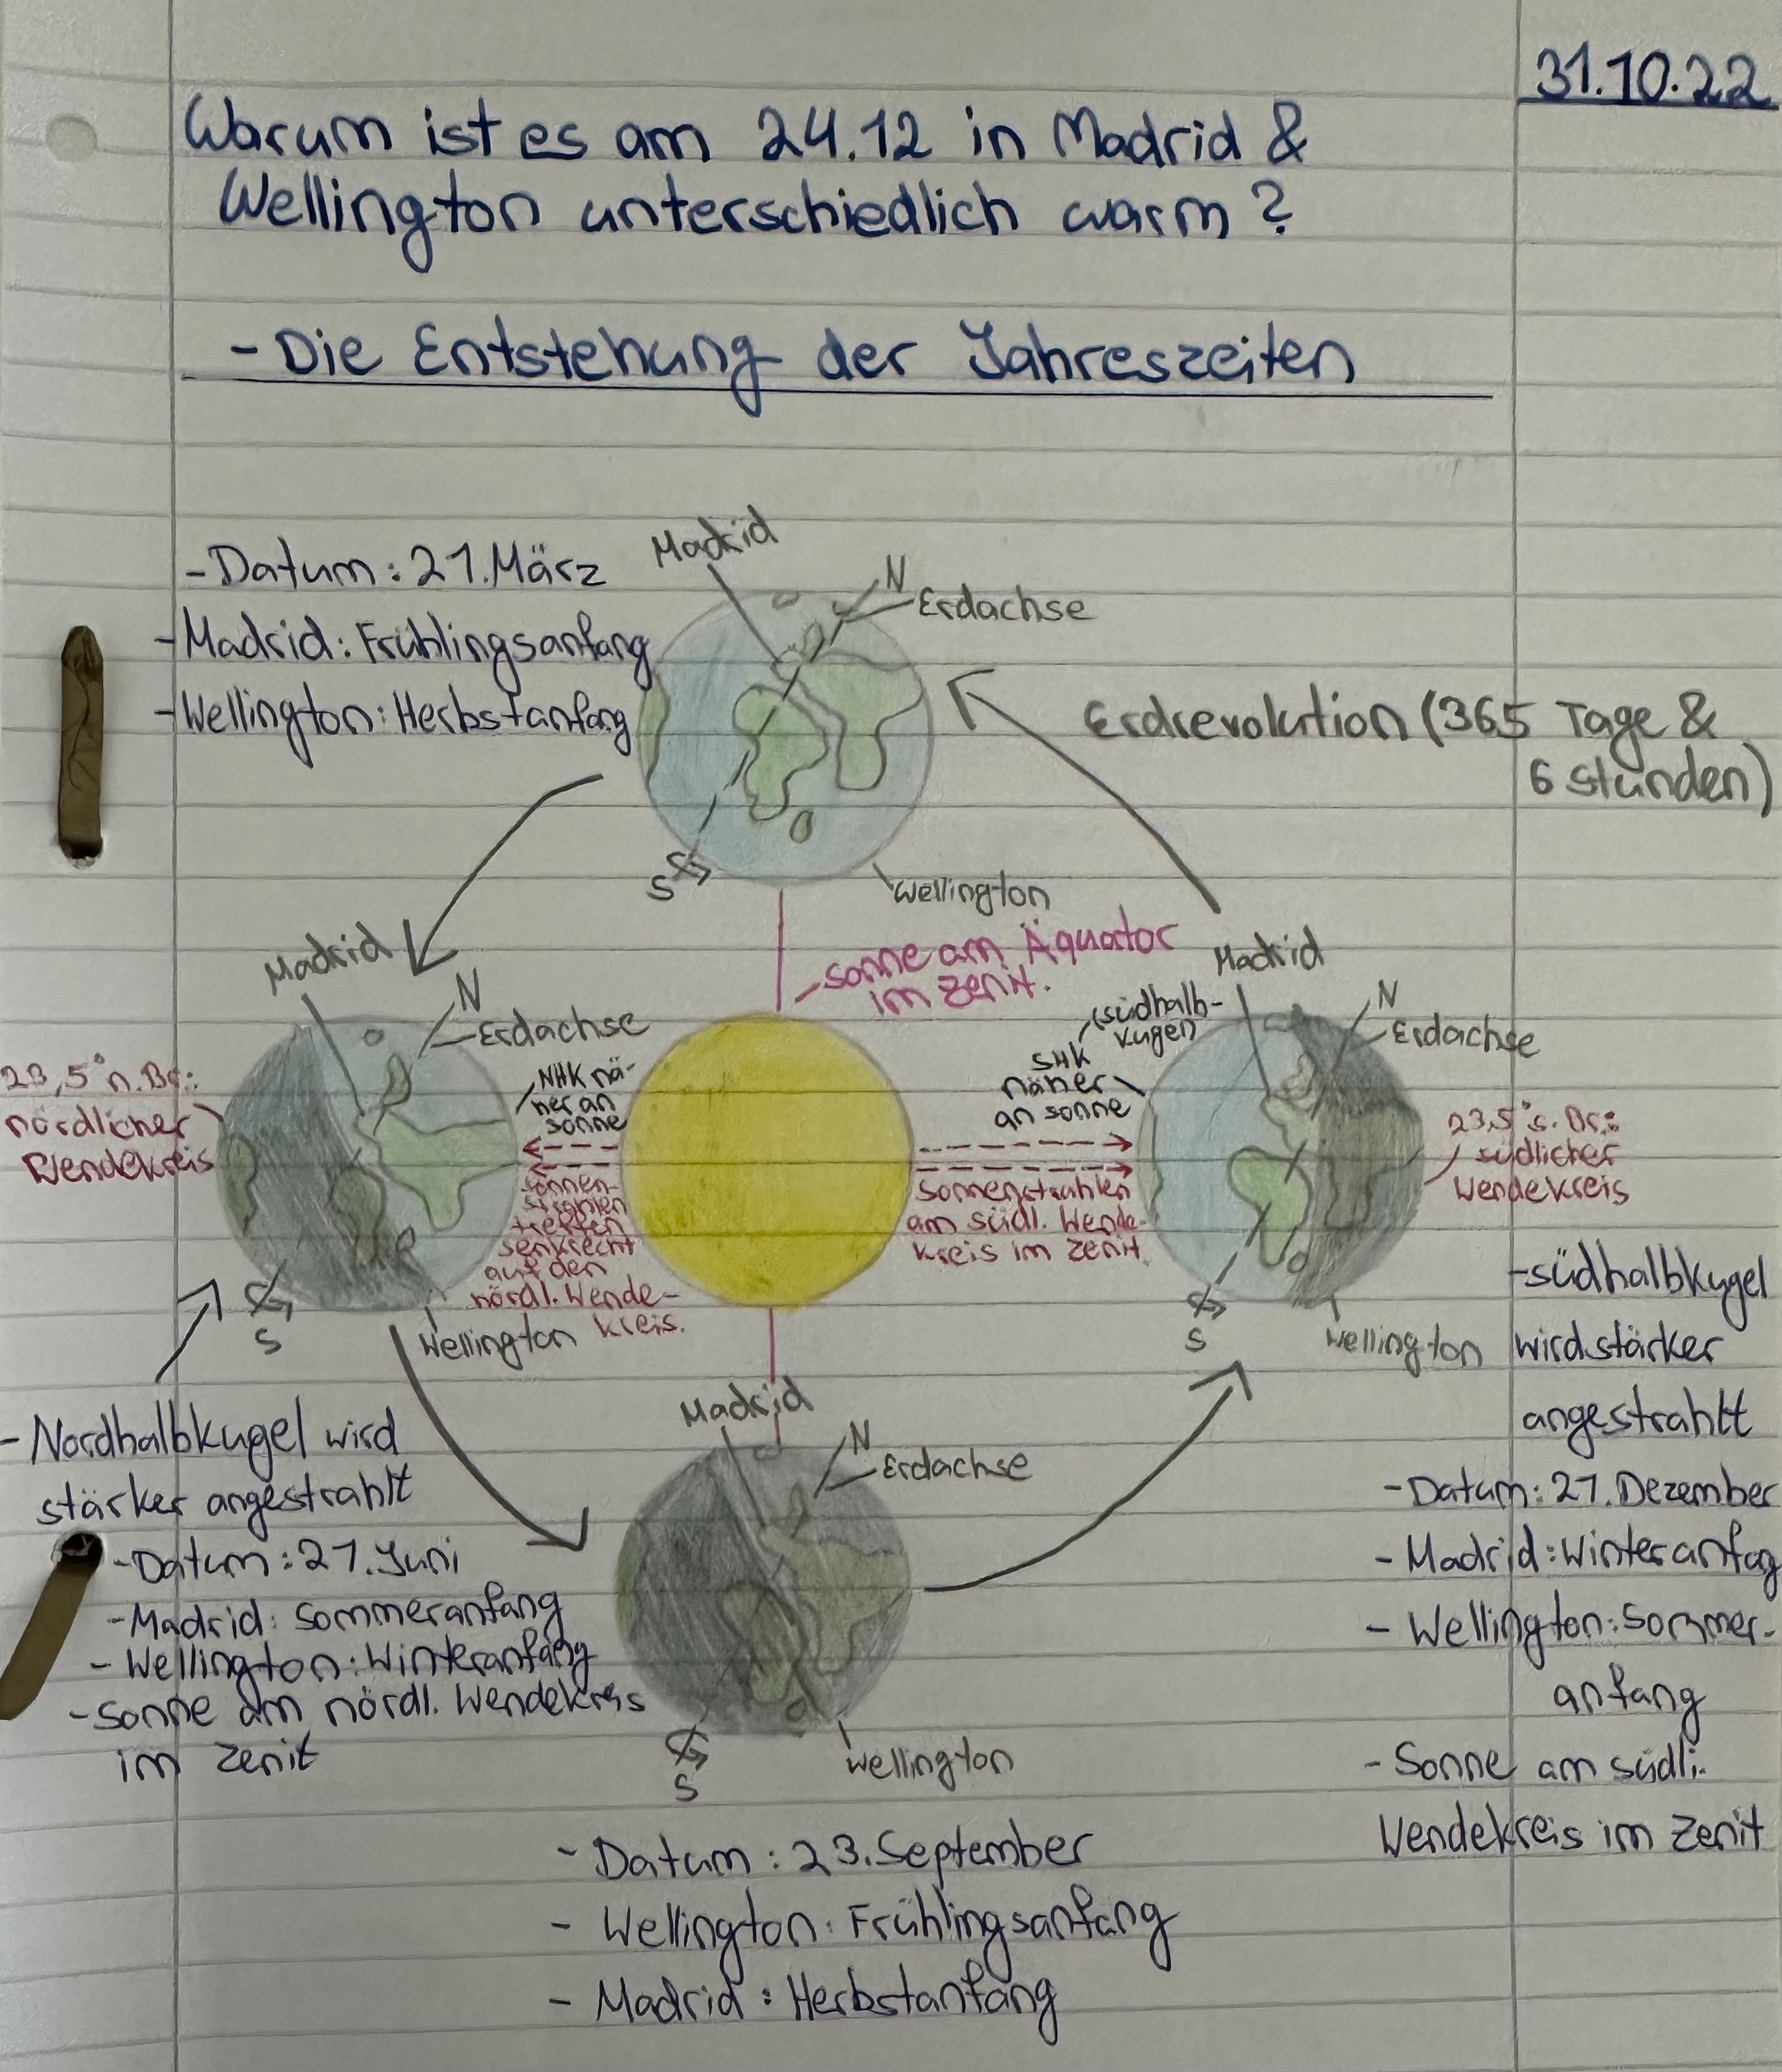 31.10.22
Warum ist es am 24.12 in Madrid &
Wellington unterschiedlich warm?
- Die Entstehung der Jahreszeiten
- Datum: 21. März
- Madrid: Frühlingsanfang
- Wellington: Herbstanfang
Madrid
N
Erdachse
S
Wellington
Erdrevolution (365 Tage &
6 stunden)
sonne am Äquator
im Zenit.
Madrid
N
Erdachse
23,5° n. Br.:
nördlicher
Wendekreis
NHK nä-
her an
sonne
sonnen-
strahlen
treffen
senkrecht
auf den
nördl. Wende-
kreis.
S
Wellington
(südhalb-
kugel)
SHK
näher
an sonne
Sonnenstrahlen
am südl. Wende-
kreis im Zenit
Madrid
N
Erdachse
23,5° s. Br.:
südlicher
Wendekreis
S
Wellington
- Nordhalbkugel wird
stärker angestrahlt
- Datum: 21. Juni
- Madrid: Sommeranfang
- Wellington: Winteranfang
- Sonne am nördl. Wendekreis
im Zenit
Madrid
N
Erdachse
S
Wellington
- südhalbkugel
wird stärker
angestrahlt
- Datum: 21. Dezember
- Madrid: Winteranfag
- Wellington: Sommer-
anfang
- Sonne am südli.
Wendekreis im Zenit
- Datum: 23. September
- Wellington: Frühlingsanfang
- Madrid: Herbstanfang